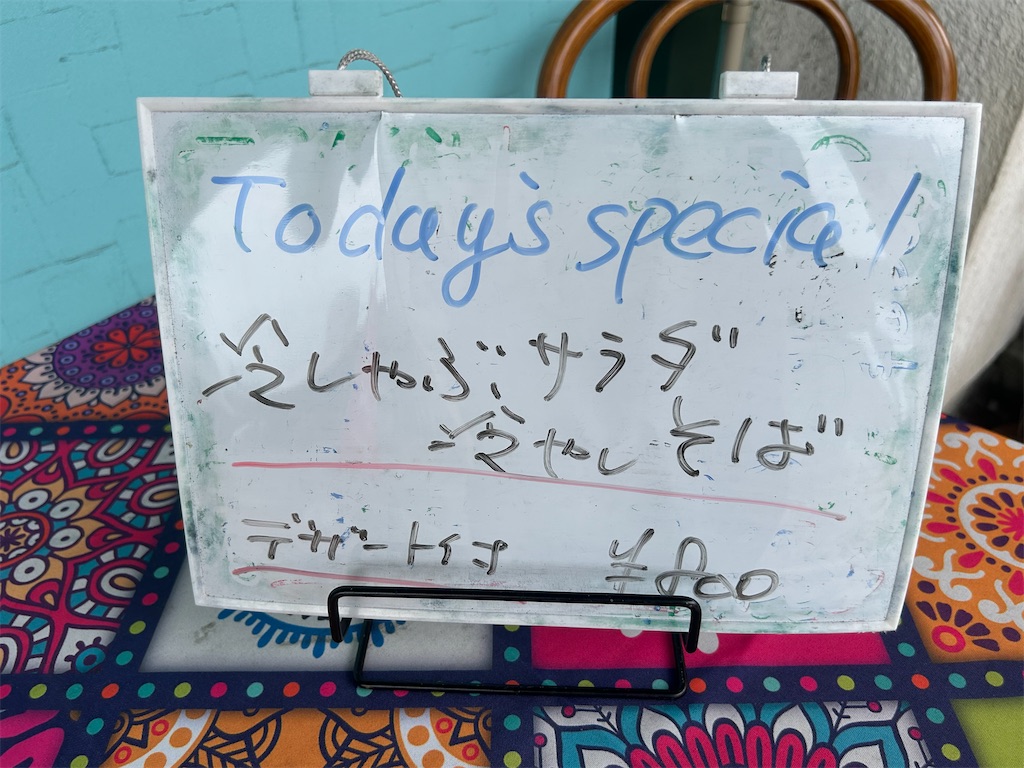 Today's special
冷しゃぶサラダ
冷やしそば
デザート付
¥800